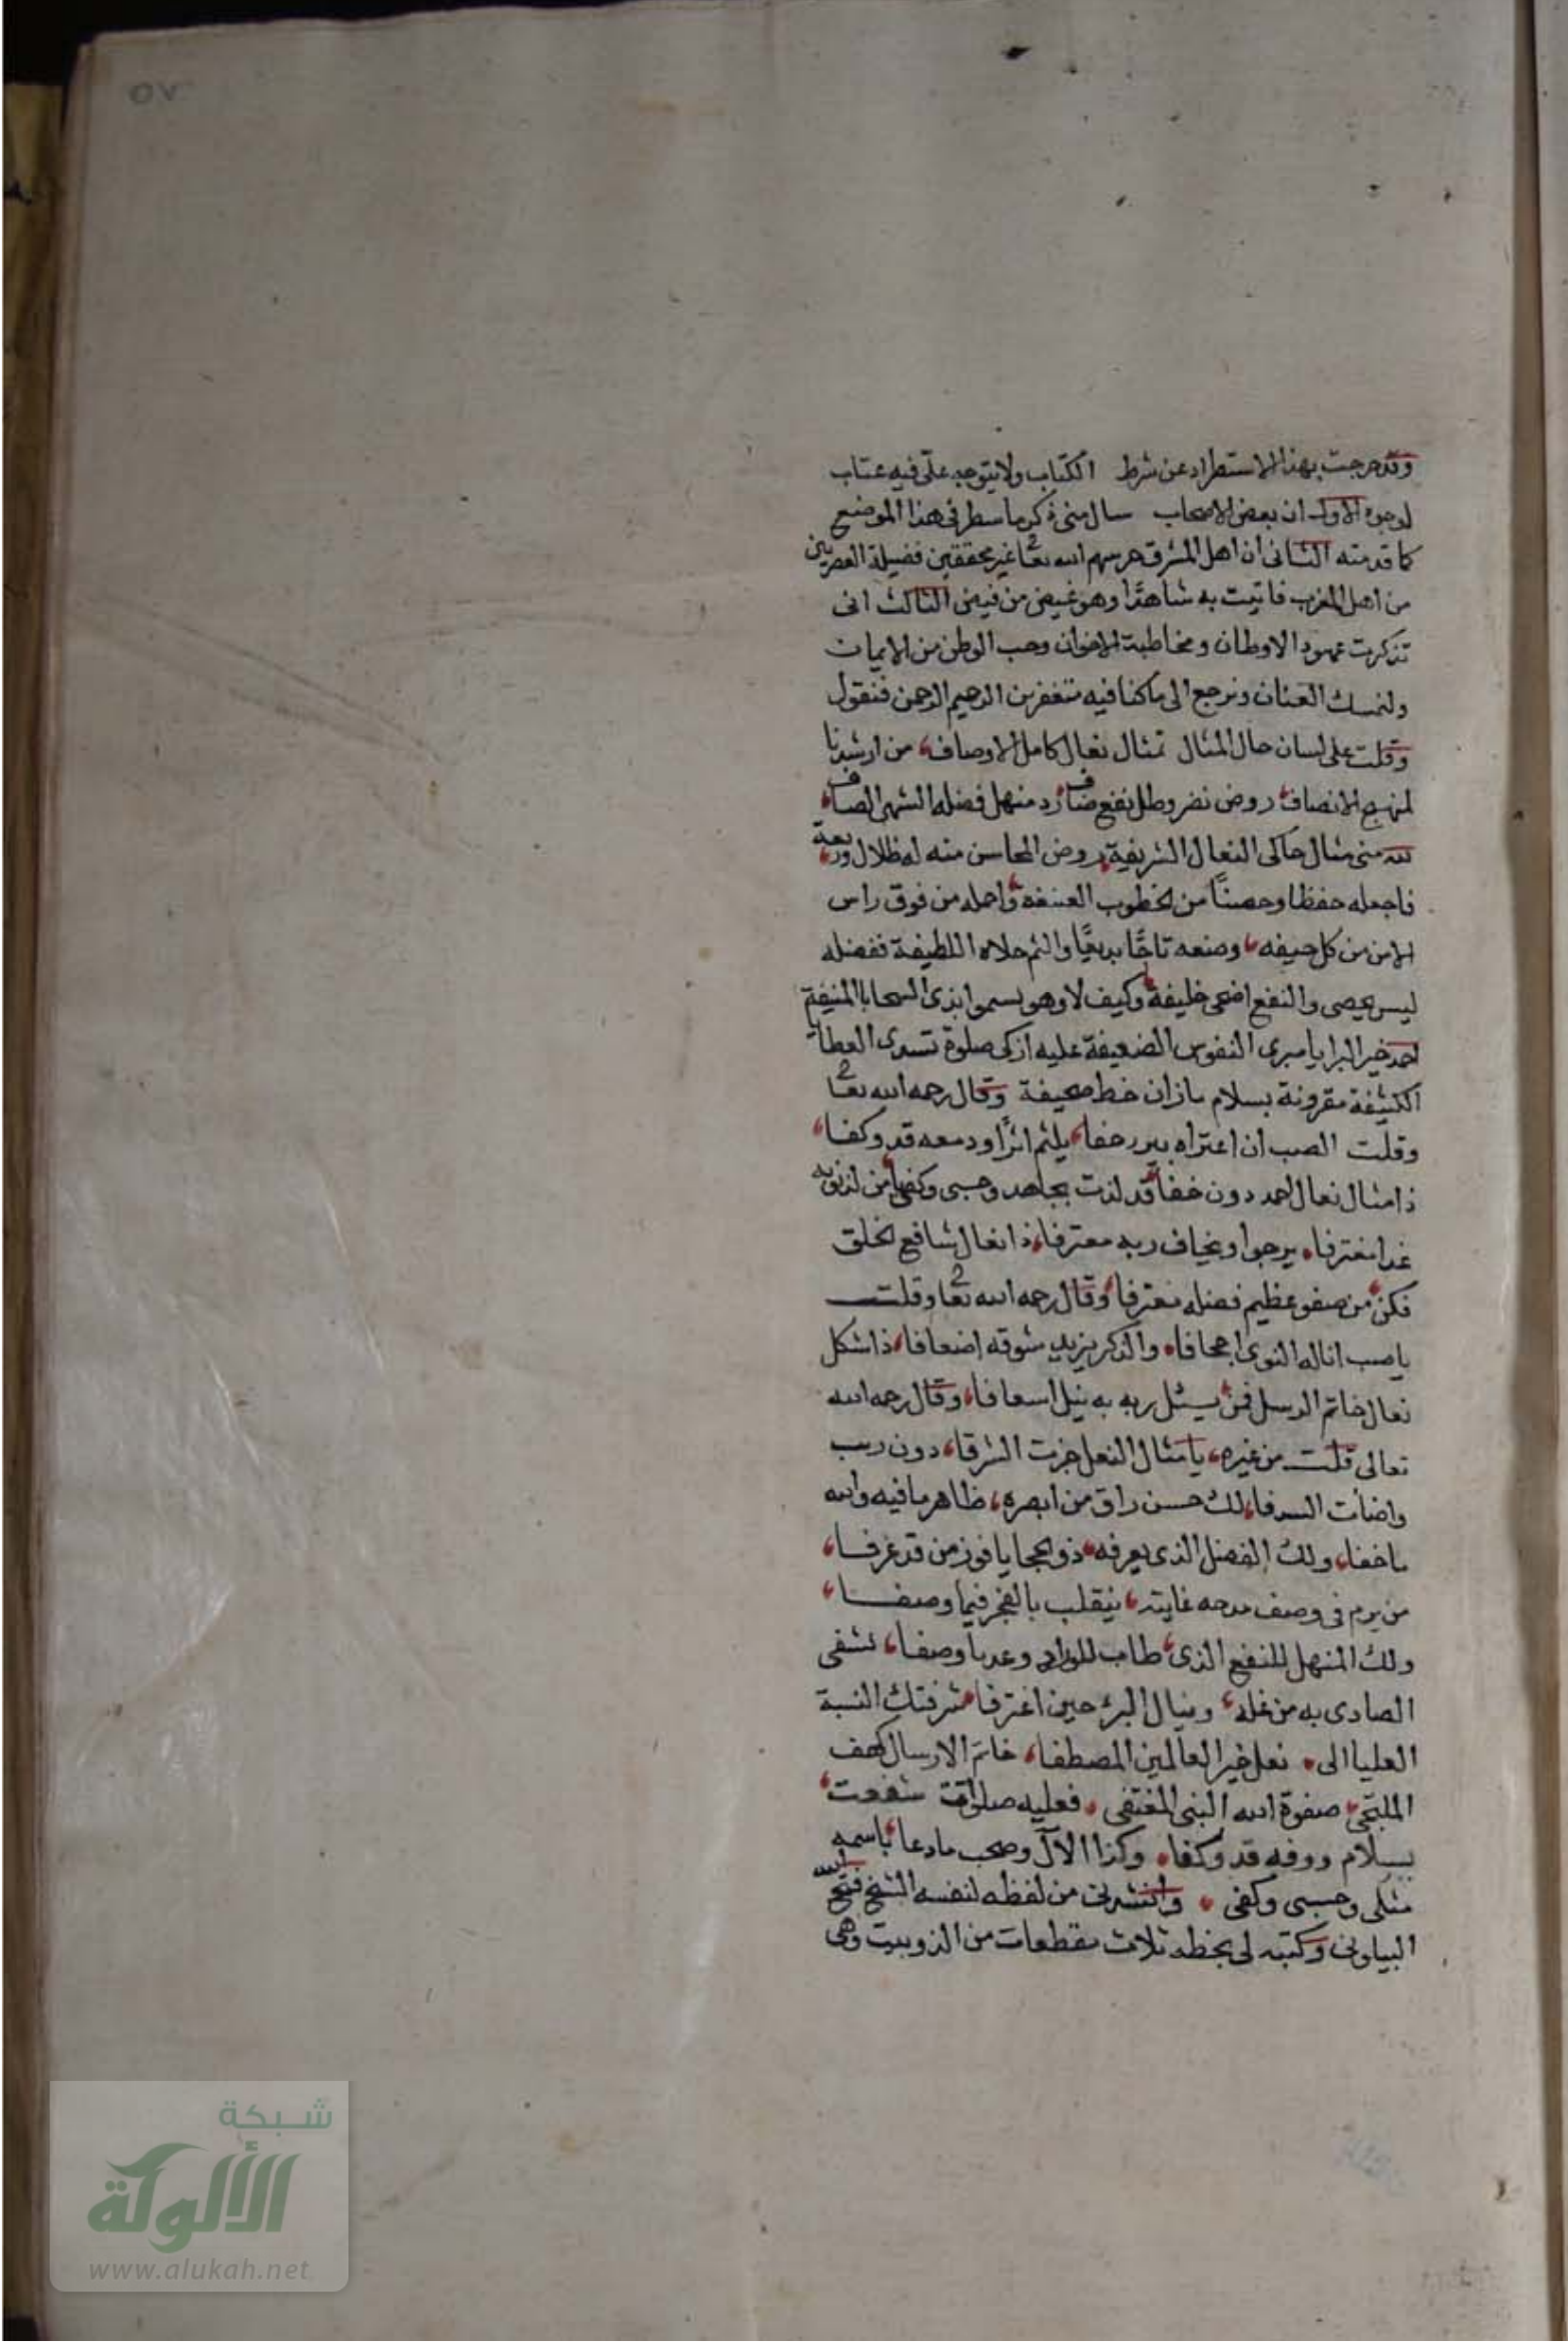 ٥٧
وقد خرجت بهذا الاستطراد عن شرط الكتاب ولا يتوجه علي فيه عتاب
لوجوه الاول ان بعض الاصحاب سال مني ذكر ما سطر في هذا الموضع
كما قدمته الثاني ان اهل المشرق حرسهم الله تعا غير محققين فضيلة العصريين
من اهل المغرب فاتيت به شاهدًا وهو غيض من فيض الثالث اني
تذكرت عهود الاوطان ومخاطبة الاخوان وحب الوطن من الايمان
ولنمسك العنان ونرجع الى ما كنا فيه الرحيم الرحمن فنقول
وقلت على لسان حال المثال تمثال نعال كامل الاوصاف، من ارشدنا
لمنهج الانصاف، روض نضر وظل نفع ضاف، رد منهل فضله الشهى الصاف،
لله مني مثال حاكى النعال الشريفة، روض المحاسن منه له ظلال وريعة،
فاجعله حفظا وحصنًا من الخطوب العنيفة، واحمله من فوق راس
الامن من كل حيفه، وضعه تاجًا بديعًا والثم حلاه اللطيفة ففضله
ليس يحصى والنفع اضحى خليفة، وكيف لا وهو يسموا بذى السجايا المنيفة
احمد خير البرايا مبرى النفوس الضعيفة عليه ازكى صلوة تسدى العطايا
الكثيفة مقرونة بسلام ما زان خط صحيفة وقال رحمه الله تعا
وقلت الصب ان اعتراه خفا، يلثم اثرًا ودمعه قد وكفا،
ذا مثال نعال احمد دون خفا، قد لذت بجاهه وحسبي وكفى، من لذنوبه
غدا مغترفا، يرجوا ويخاف ربه معترفا، ذا نعال شافع الخلق
فكن، من صفو عظيم فضله مغترفا، وقال رحمه الله تعا وقلت
يا صب اناله النوى اجحافا، والذكر يزيد شوقه اضعافا، ذا شكل
نعال خاتم الرسل فمن، يسئل ربه به ينل اسعافا، وقال رحمه الله
تعالى قلت من غيره، يا مثال النعل حزت الشرفا، دون ريب
واضأت السدفا، لك حسن راق من ابصره، ظاهر ما فيه والله
ما خفا، ولك الفضل الذى يعرفه، ذو الحجا يا فوز من قد عرفا،
من يرم في وصف مدحه غايته، ينقلب بالعجز فيما وصفا،
ولك المنهل للنفع الذى، طاب للوراد وعدبا وصفا، تشفى
الصادى به من غله، وينال البرء حين اغترفا، شرفتك النسبة
العليا الى، نعل خير العالمين المصطفا، خاتم الارسال كهف
الملتجى، صفوة الله النبي المقتفى، فعليه صلوات شفعت،
بسلام قد وكفا، وكذا الآل وصحب ما دعا، باسمه
مثلى وحسبى وكفى، وانشدني من لفظه لنفسه الشيخ فتح الله
البيلوني وكتبه لى بخطه ثلاث مقطعات من الذوبيت وهى
شبكة
الألوكة
www.alukah.net